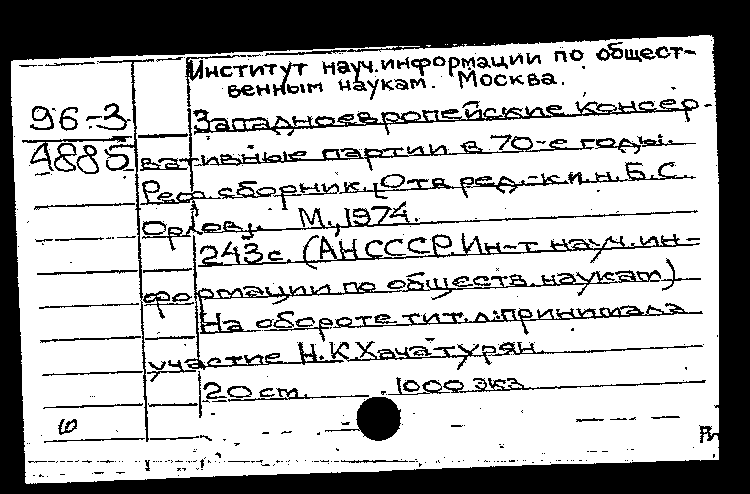 Институт науч.информации по общест-
венным наукам. Москва.
96-3
Западноевропейские консер-
4885
вативные партии в 70-е годы.
Реф. сборник. [Отв. ред.-к.и.н. Б.С.
Орлов]. М., 1974.
243 с. (АН СССР. Ин-т науч. ин-
формации по обществ. наукам)
На обороте тит. л.: принимала
участие Н.К.Хачатурян.
20 см. 1000 экз.